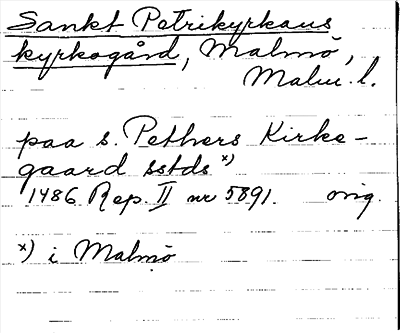 Sankt Petrikyrkans
kyrkogård, Malmö,
Malm. l.
paa s. Pethers Kirke-
gaard sstds x)
1486 Rep. II nr 5891. orig.
x) i Malmö